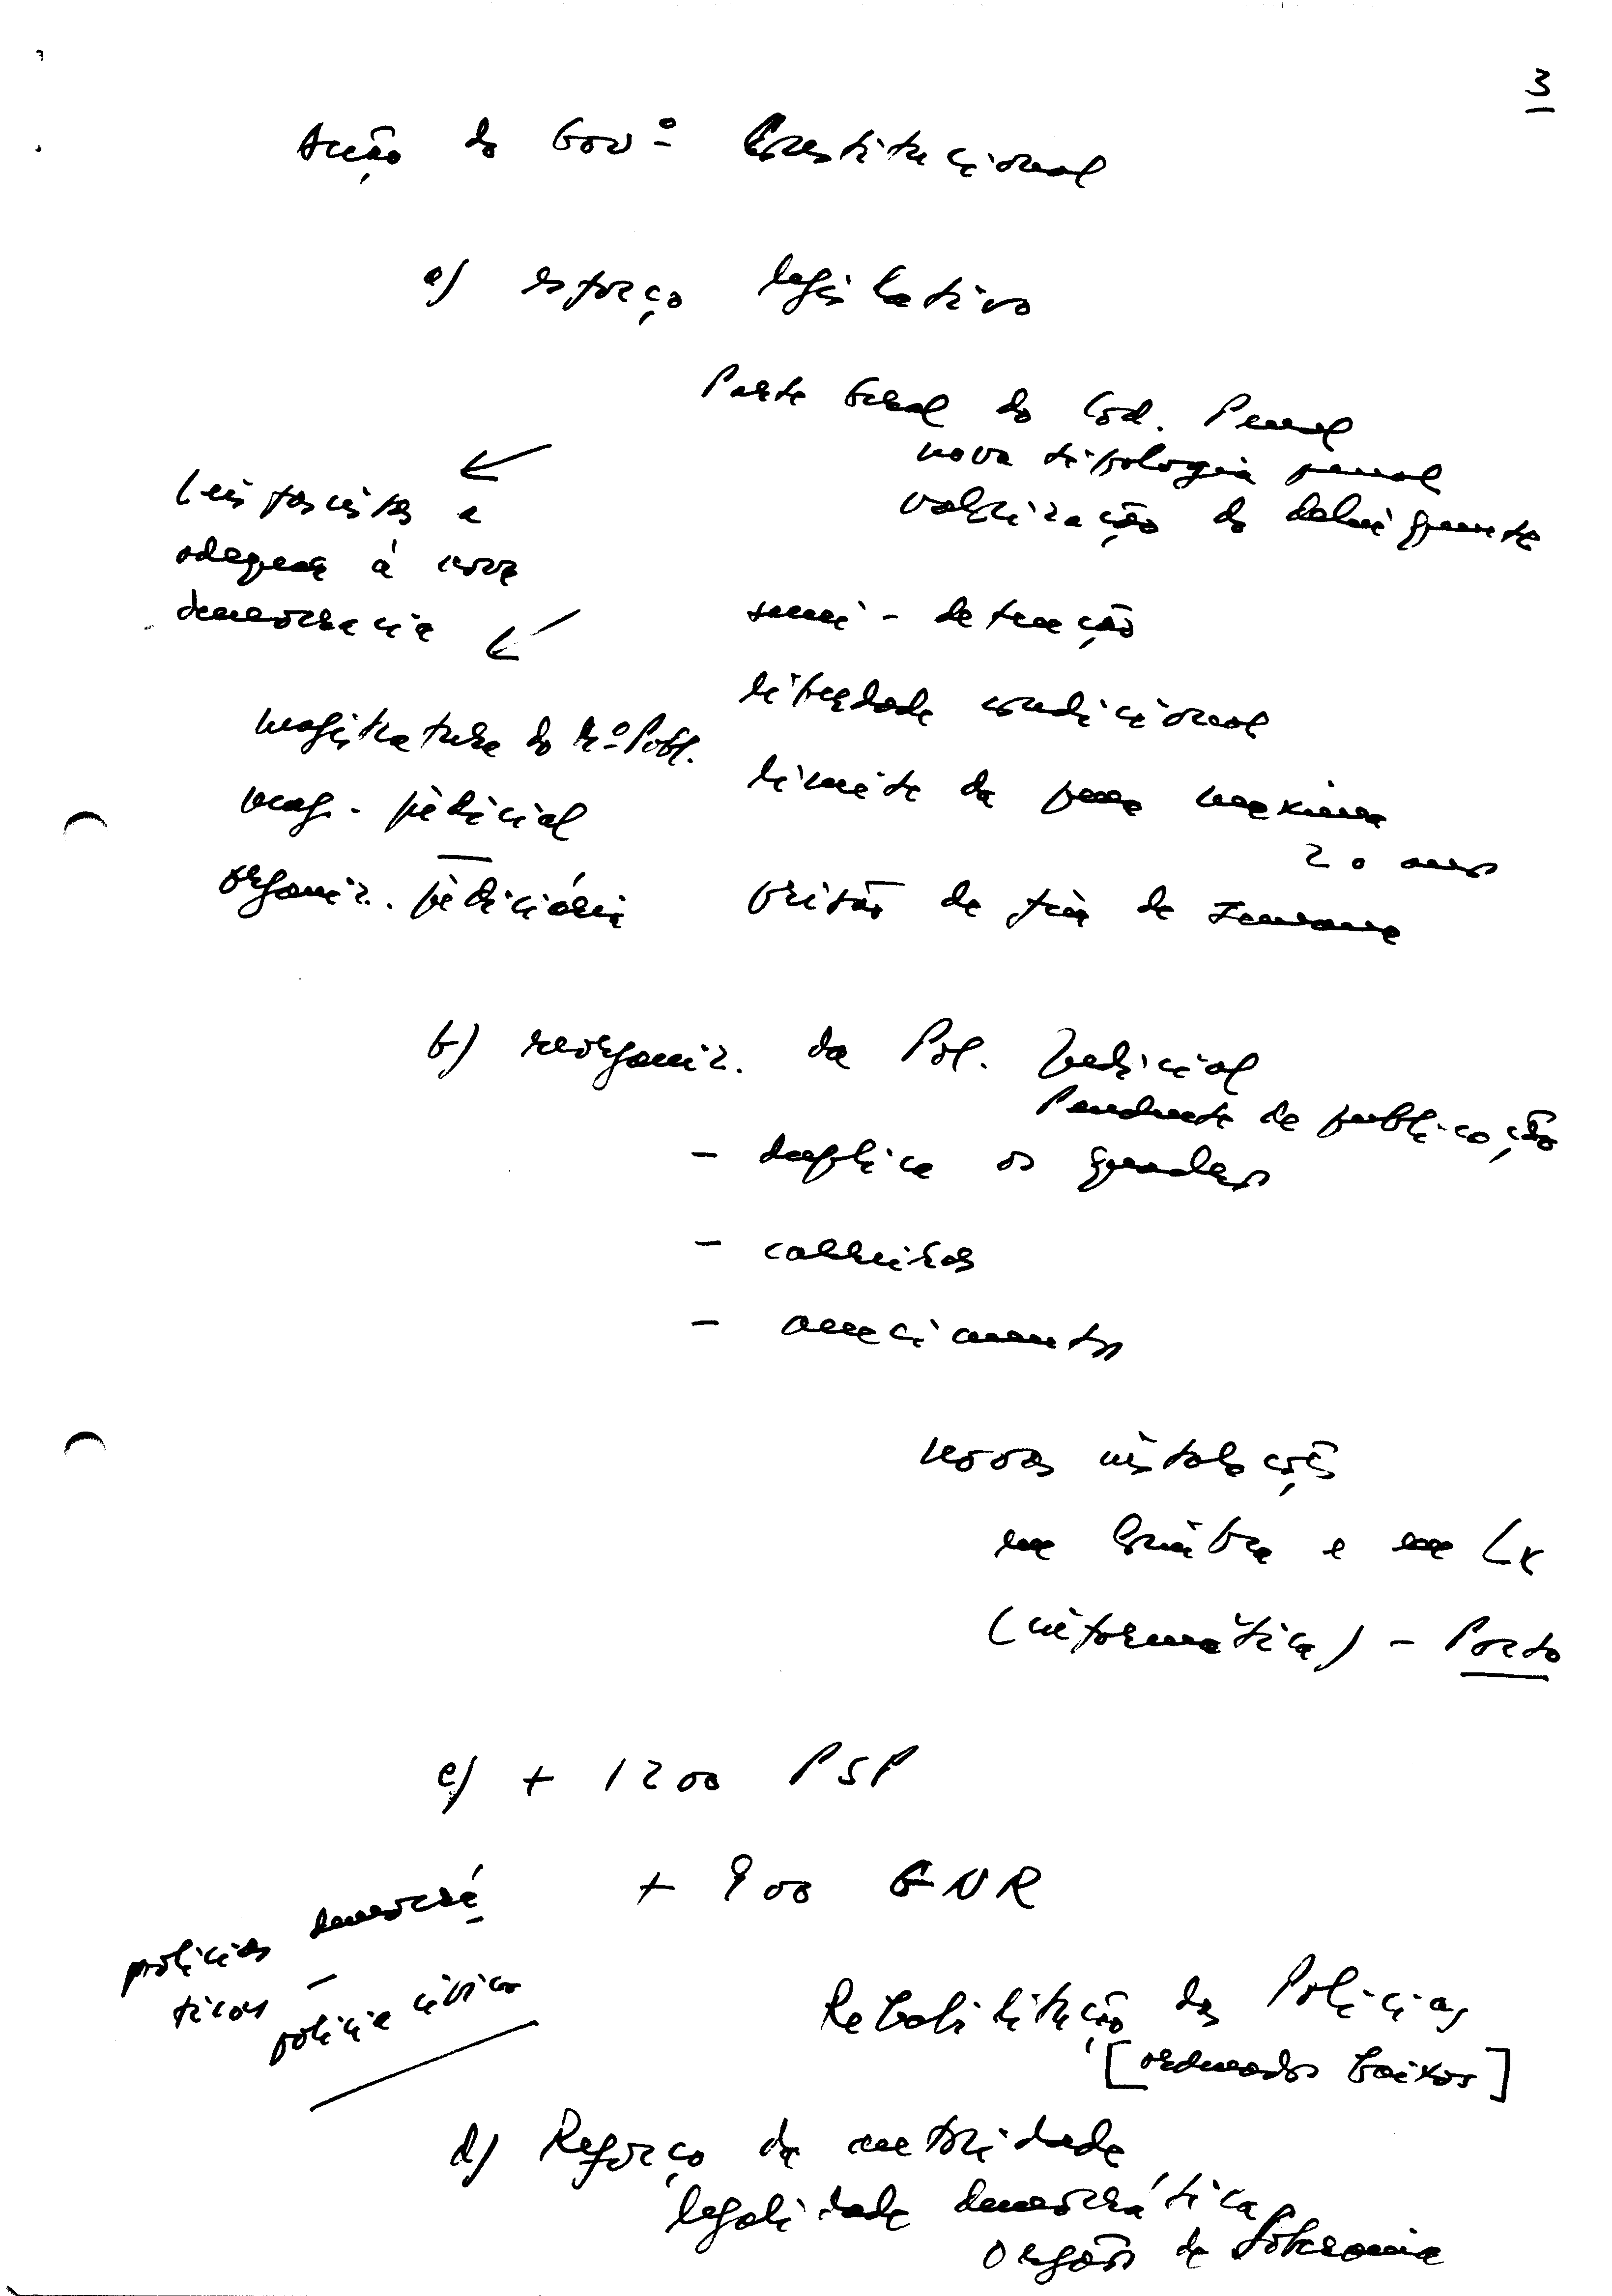 3
Acção do Gov.º Constitucional
a) esforço legislativo
Parte Geral do Cód. Penal
nova tipologia penal
valorização do delinquente
Leis fascistas a
adequar à nova
democracia
semi-detenção
liberdade condicional
magistratura do M.º Públ.
limite da pena máxima
20 anos
mag. judicial
organiz. judiciária
prisão de fim de semana
b) reorganiz. da Pol. Judicial
Pendente de publicação
- duplica os quadros
- carreiras
- vencimentos
novas instalações
em Coimbra e em Lx
(informática) - Porto
c) + 1200 PSP
+ 900 GNR
polícias democrá
ticas - polícia cívica
Rehabilitação das Polícias
[ordenados baixos]
d) Reforço da autoridade
legalidade democrática
orgãos de Soberania